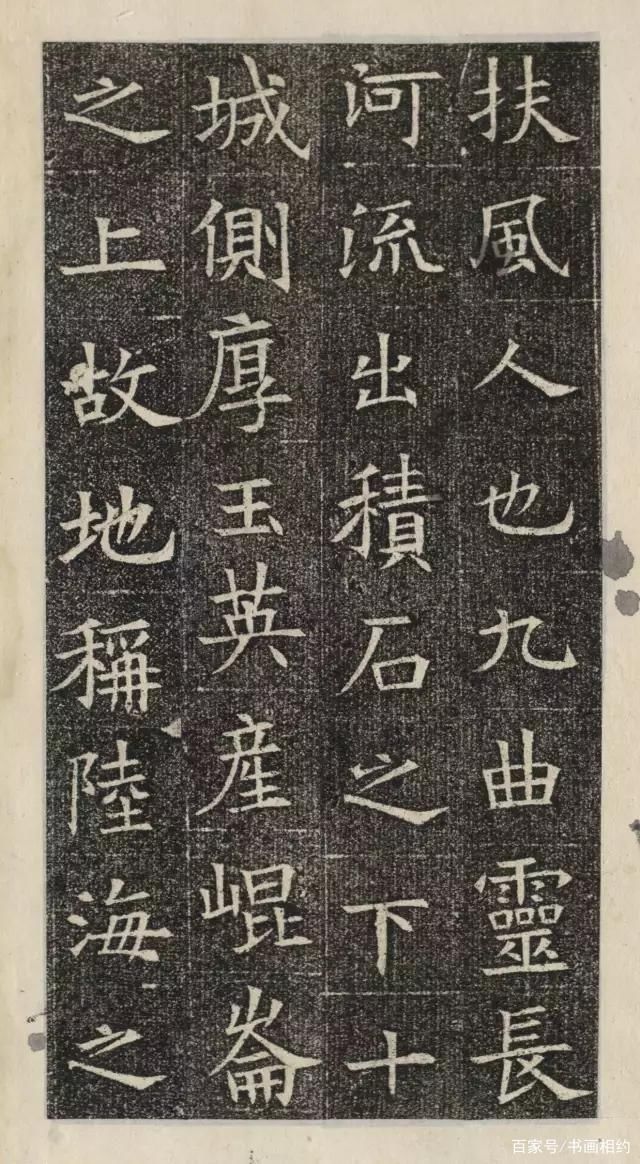 扶風人也九曲靈長
河流出積石之下十
城側厚玉英產崐崙
之上故地稱陸海之
百家号/书画相约